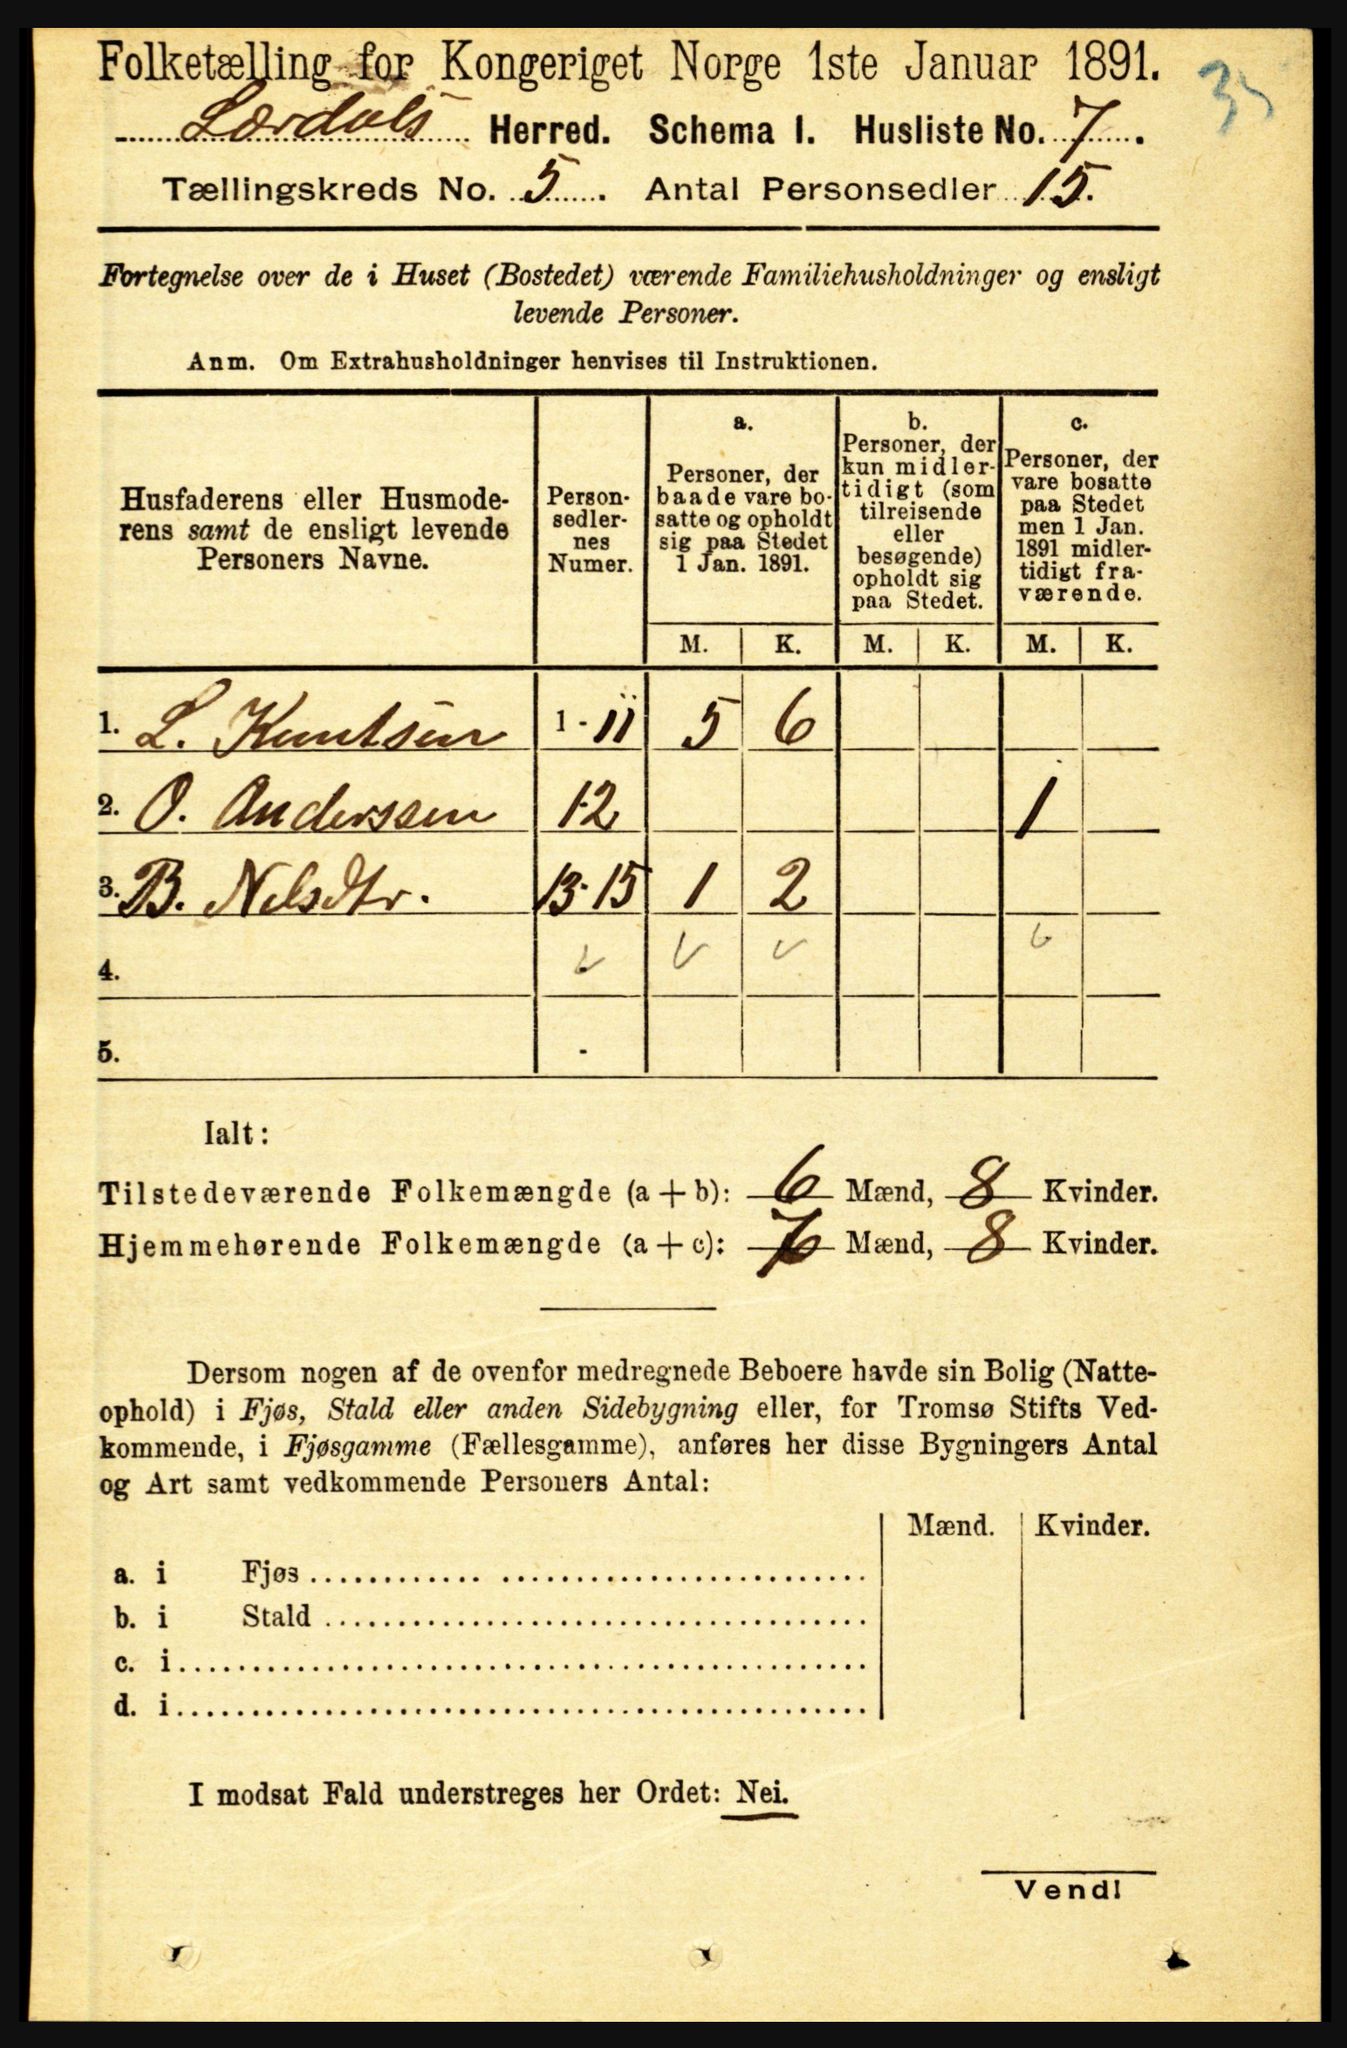 Folketælling for Kongeriget Norge 1ste Januar 1891.
35
Lærdals Herred. Schema I. Husliste No. 7.
Tællingskreds No. 5. Antal Personsedler 15.
Fortegnelse over de i Huset (Bostedet) værende Familiehusholdninger og ensligt
levende Personer.
Anm. Om Extrahusholdninger henvises til Instruktionen.
Husfaderens eller Husmode-
rens samt de ensligt levende
Personers Navne.
Person-
sedler-
nes
Numer.
a.
Personer, der
baade vare bo-
satte og opholdt
sig paa Stedet
1 Jan. 1891.
b.
Personer, der
kun midler-
tidigt (som
tilreisende
eller
besøgende)
opholdt sig
paa Stedet.
c.
Personer, der
vare bosatte
paa Stedet
men 1 Jan.
1891 midler-
tidigt fra-
værende.
M. K. M. K. M. K.
1. L. Knutsen 1 - 11 5 6
2. O. Anderssen 12 1
3. B. Nelsdtr. 13-15 1 2
4.
5. -
Ialt:
Tilstedeværende Folkemængde (a + b): 6 Mænd, 8 Kvinder.
Hjemmehørende Folkemængde (a + c): 7 Mænd, 8 Kvinder.
Dersom nogen af de ovenfor medregnede Beboere havde sin Bolig (Natte-
ophold) i Fjøs, Stald eller anden Sidebygning eller, for Tromsø Stifts Ved-
kommende, i Fjøsgamme (Fællesgamme), anføres her disse Bygningers Antal
og Art samt vedkommende Personers Antal:
Mænd. Kvinder.
a. i Fjøs
b. i Stald
c. i
d. i
I modsat Fald understreges her Ordet: Nei.
Vend!